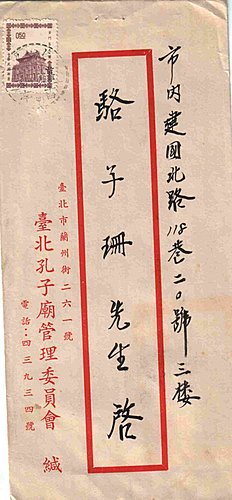 市內建國北路118巷二〇號三楼
駱子珊先生啓
臺北市蘭州街二六一號
臺北孔子廟管理委員會 緘
電話：四三九三四號
050